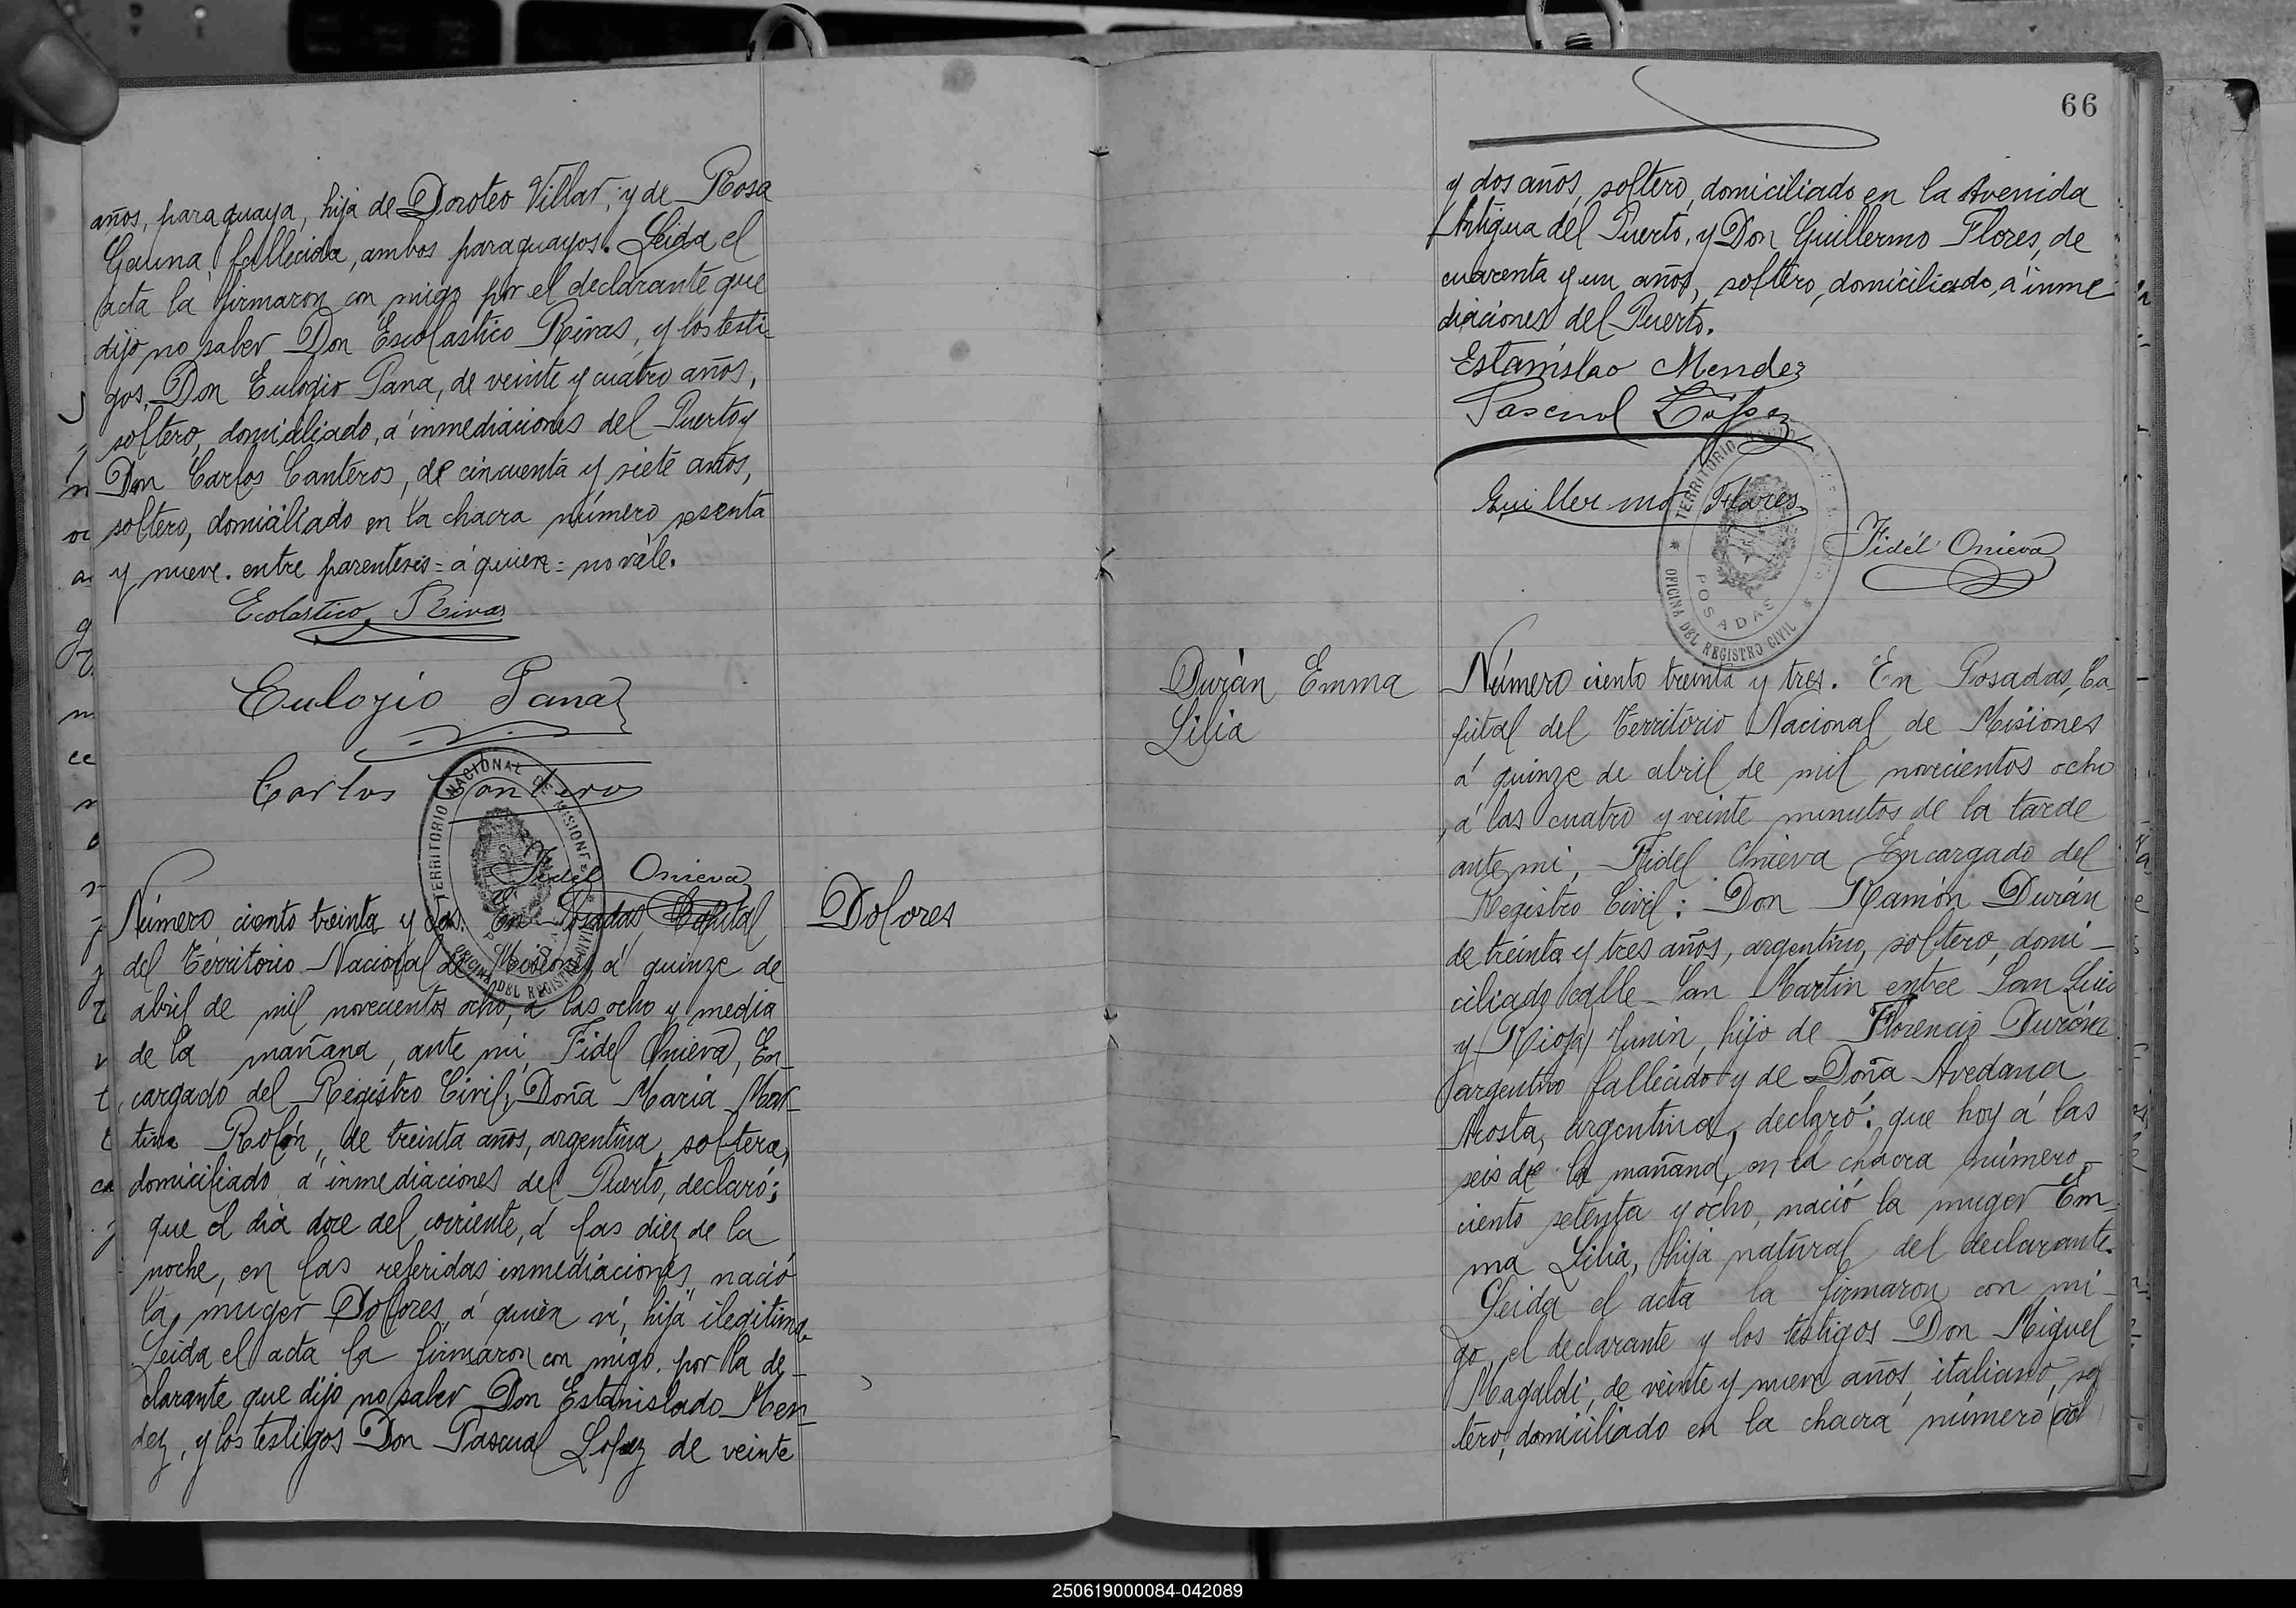 años, paraguaya, hija de Doroteo Villar, y de Rosa
Gauna, fallecida, ambos paraguayos. Leida el
acta la firmaron con migo por el declarante que
dijo no saber Don Escolastico Rivas, y los testi
gos, Don Eulogio Pana, de veinte y cuatro años,
soltero, domiciliado, á inmediaciones del Puerto y
Don Carlos Canteros, de cincuenta y siete años,
soltero, domiciliado en la chacra número sesenta
y nueve. entre parentesis = á quien = no vále.
Ecolastico Rivas
Eulogio Pana
Carlos Cantero
TERRITORIO NACIONAL DE MISIONES
OFICINA DEL REGISTRO CIVIL
Fidel Onieva
Dolores
Número ciento treinta y dos. En Posadas Capital
del Territorio Nacional de Misiones á quinze de
abril de mil novecientos ocho, á las ocho y media
de la mañana, ante mi, Fidel Onieva, En-
cargado del Registro Civil, Doña Maria Mar-
tina Rolón, de treinta años, argentina, soltera,
domiciliado á inmediaciones del Puerto, declaró;
que el dia doce del corriente, á las diez de la
noche, en las referidas inmediaciones, nació
la muger Dolores, á quien ví, hija ilegitima.
Leida el acta la firmaron con migo. por la de-
clarante que dijo no saber Don Estanislado Men-
dez, y los testigos Don Pascual Lopez de veinte
66
y dos años, soltero, domiciliado en la Avenida
Antigua del Puerto, y Don Guillermo Flores, de
cuarenta y un años, soltero, domiciliado, á inme
diaciones del Puerto.
Estanislao Mendez
Pascual López
Guillermo Flores
TERRITORIO NACIONAL DE MISIONES
POSADAS
OFICINA DEL REGISTRO CIVIL
Fidel Onieva
Durán Emma
Lilia
Número ciento treinta y tres. En Posadas, Ca
pital del Territorio Nacional de Misiones
á quinze de abril de mil novecientos ocho
á las cuatro y veinte minutos de la tarde
ante mi, Fidel Onieva Encargado del
Registro Civil: Don Ramón Durán
de treinta y tres años, argentino, soltero, domi-
ciliado calle San Martin entre San Luis
y (Rioja) Junin, hijo de Florencio Durán
argentino fallecido y de Doña Avedana
Acosta, argentina, declaró: que hoy á las
seis de la mañana, en la chacra número
ciento setenta y ocho, nació la muger Em-
ma Lilia, hija natural del declarante.
Leida el acta la firmaron con mi-
go, el declarante y los testigos Don Miguel
Magaldi, de veinte y nueve años, italiano, sol
tero, domiciliado en la chacra número
250619000084-042089